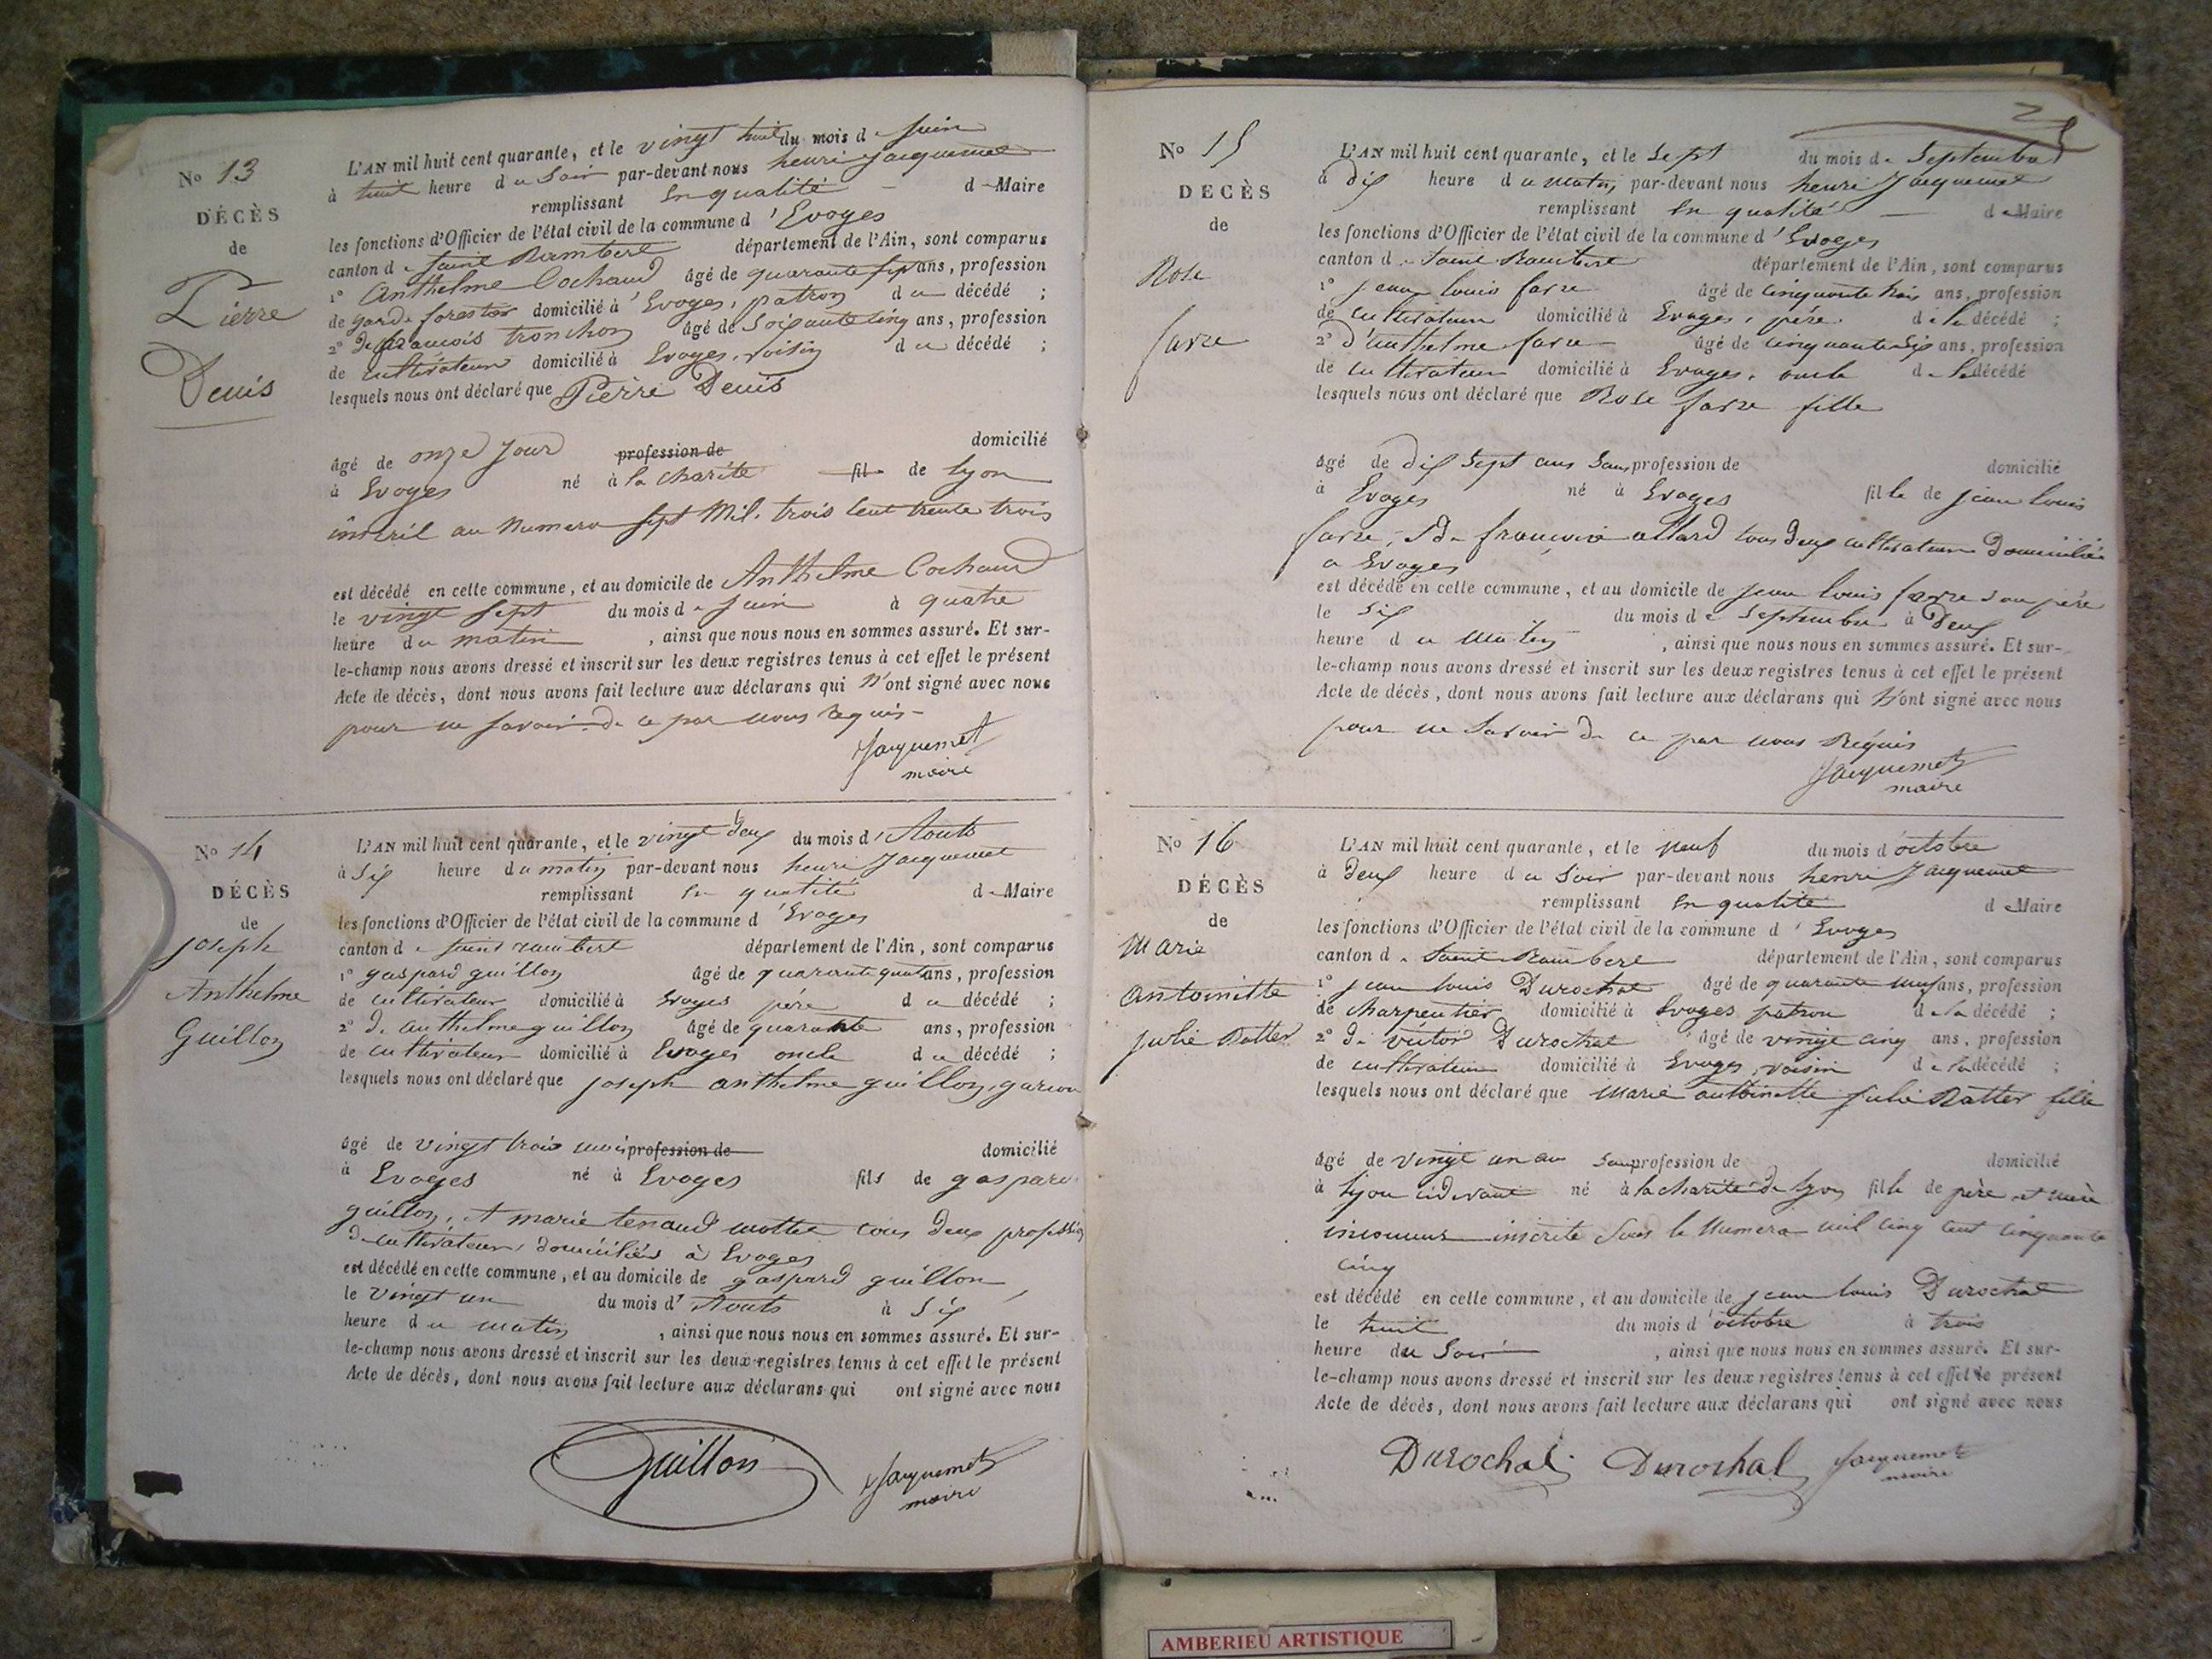 N° 13
DÉCÈS
de
Pierre
Denis
L'AN mil huit cent quarante, et le vingt huit du mois de Juin
à huit heure du Soir par-devant nous henri Jacquemet
remplissant en qualité de Maire
les fonctions d'Officier de l'état civil de la commune d'Evoges
canton de Saint Rambert département de l'Ain, sont comparus
1° Anthelme Cochaud âgé de quarante sept ans, profession
de garde forestier domicilié à Evoges, patron du décédé ;
2° de francois tronchon âgé de Soixante cinq ans, profession
de cultivateur domicilié à Evoges, voisin du décédé ;
lesquels nous ont déclaré que Pierre Denis
âgé de onze Jour profession de domicilié
à Evoges né à la charité fil de Lyon
inscrit au Numero Sept Mil. trois Cent trente trois
est décédé en cette commune, et au domicile de Anthelme Cochaud
le vingt Sept du mois de Juin à quatre
heure du matin, ainsi que nous nous en sommes assuré. Et sur-
le-champ nous avons dressé et inscrit sur les deux registres tenus à cet effet le présent
Acte de décès, dont nous avons fait lecture aux déclarans qui N'ont signé avec nous
pour ne Savoir de ce par nous requis
Jacquemet
maire
N° 14
DÉCÈS
de
Joseph
Anthelme
Guillon
L'AN mil huit cent quarante, et le vingt deux du mois d'Aouts
à Six heure du matin par-devant nous henri Jacquemet
remplissant en qualité de Maire
les fonctions d'Officier de l'état civil de la commune d'Evoges
canton de Saint rambert département de l'Ain, sont comparus
1° gaspard guillon âgé de quarante quat ans, profession
de cultivateur domicilié à Evoges père du décédé ;
2° de anthelme guillon âgé de quarante ans, profession
de cultivateur domicilié à Evoges oncle du décédé ;
lesquels nous ont déclaré que joseph anthelme guillon, garcon
âgé de vingt trois mois profession de domicilié
à Evoges né à Evoges fils de gaspard
guillon, et marie tenaud mottet tous deux profession
de cultivateur, domiciliés à Evoges
est décédé en cette commune, et au domicile de gaspard guillon
le vingt un du mois d'Aouts à Six
heure du matin, ainsi que nous nous en sommes assuré. Et sur-
le-champ nous avons dressé et inscrit sur les deux registres tenus à cet effet le présent
Acte de décès, dont nous avons fait lecture aux déclarans qui ont signé avec nous
Guillon
Jacquemet
maire
N° 15
DECÈS
de
Rose
favre
L'AN mil huit cent quarante, et le Sept du mois de Septembre
à dix heure du matin par-devant nous henri Jacquemet
remplissant en qualité de Maire
les fonctions d'Officier de l'état civil de la commune d'Evoges
canton de Saint Rambert département de l'Ain, sont comparus
1° jean Louis favre âgé de cinquante trois ans, profession
de cultivateur domicilié à Evoges, père de la décédé ;
2° d'anthelme favre âgé de cinquante Six ans, profession
de cultivateur domicilié à Evoges, oncle de la décédé
lesquels nous ont déclaré que Rose favre fille
âgé de dix Sept ans Sans profession de domicilié
à Evoges né à Evoges fille de jean Louis
favre, et de francoise allard tous deux cultivateur Domiciliés
a Evoges
est décédé en cette commune, et au domicile de jean Louis favre son père
le Six du mois de Septembre à Deux
heure du Matin, ainsi que nous nous en sommes assuré. Et sur-
le-champ nous avons dressé et inscrit sur les deux registres tenus à cet effet le présent
Acte de décès, dont nous avons fait lecture aux déclarans qui N'ont signé avec nous
pour ne Savoir de ce par nous Réquis
Jacquemet
maire
N° 16
DÉCÈS
de
Marie
Antoinette
Julie Ratter
L'AN mil huit cent quarante, et le neuf du mois d'octobre
à deux heure du Soir par-devant nous henri Jacquemet
remplissant en qualité de Maire
les fonctions d'Officier de l'état civil de la commune d'Evoges
canton de Saint Rambert département de l'Ain, sont comparus
1° jean Louis Durochat âgé de quarante neuf ans, profession
de charpentier domicilié à Evoges patron de la décédé ;
2° de victor Durochat âgé de vingt cinq ans, profession
de cultivateur domicilié à Evoges, voisin de la décédé ;
lesquels nous ont déclaré que Marie antoinette Julie Ratter fille
âgé de vingt un an Sans profession de domicilié
à Lyon cidevant né à la charité de Lyon fille de père et mère
inconnus inscrite Sous le Numero mil cinq cent cinquante
cinq
est décédé en cette commune, et au domicile de jean Louis Durochat
le huit du mois d'octobre à trois
heure du Soir, ainsi que nous nous en sommes assuré. Et sur-
le-champ nous avons dressé et inscrit sur les deux registres tenus à cet effet le présent
Acte de décès, dont nous avons fait lecture aux déclarans qui ont signé avec nous
Durochat Durochat Jacquemet
maire
AMBERIEU ARTISTIQUE